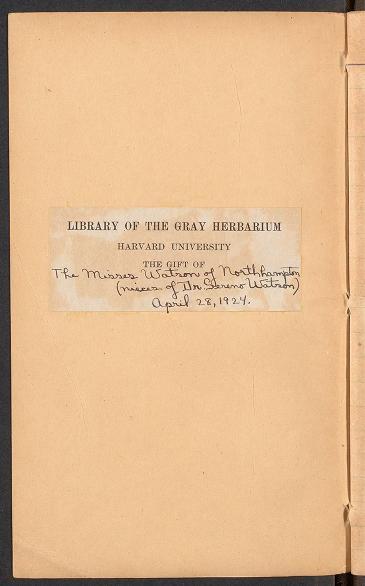 LIBRARY OF THE GRAY HERBARIUM
HARVARD UNIVERSITY
THE GIFT OF
The Misses Watson of Northhampton
(nieces of Dr. Sereno Watson)
April 28, 1924.